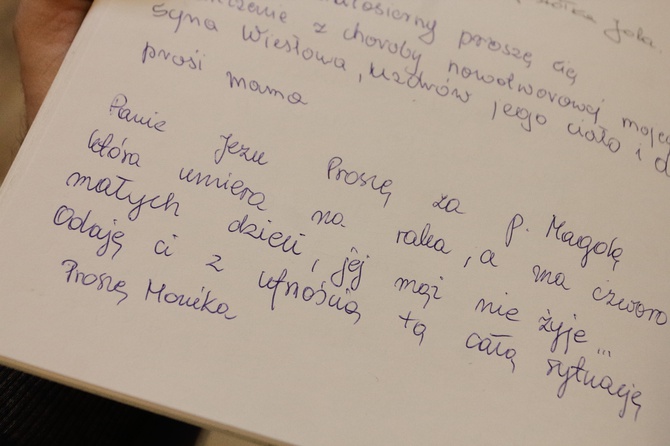 Jola.
miłosierny proszę cię
z choroby nowotworowej mojego
syna Wiesława, uzdrów jego ciało i d
prosi mama
Panie Jezu Proszę za p. Magdę
która umiera na raka, a ma czworo
małych dzieci, jej mąż nie żyje...
Oddaję ci z ufnością tą całą sytuację
Proszę Monika